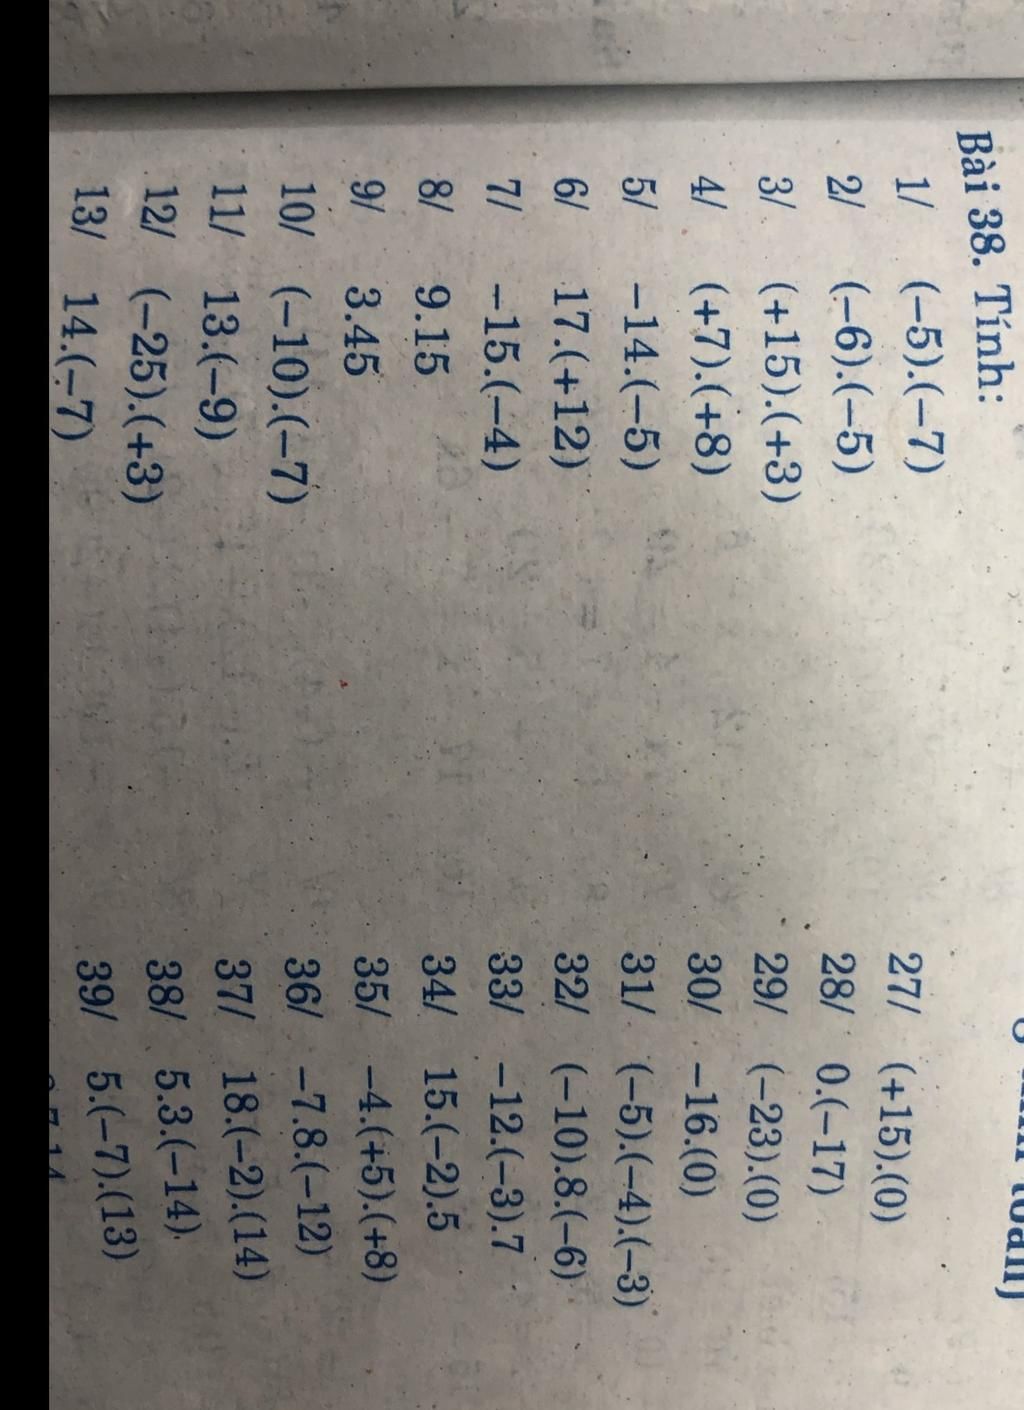 toán)
Bài 38. Tính:
1/ (−5).(−7)
2/ (−6).(−5)
3/ (+15).(+3)
4/ (+7).(+8)
5/ −14.(−5)
6/ 17.(+12)
7/ −15.(−4)
8/ 9.15
9/ 3.45
10/ (−10).(−7)
11/ 13.(−9)
12/ (−25).(+3)
13/ 14.(−7)
27/ (+15).(0)
28/ 0.(−17)
29/ (−23).(0)
30/ −16.(0)
31/ (−5).(−4).(−3)
32/ (−10).8.(−6)
33/ −12.(−3).7
34/ 15.(−2).5
35/ −4.(+5).(+8)
36/ −7.8.(−12)
37/ 18.(−2).(14)
38/ 5.3.(−14)
39/ 5.(−7).(13)